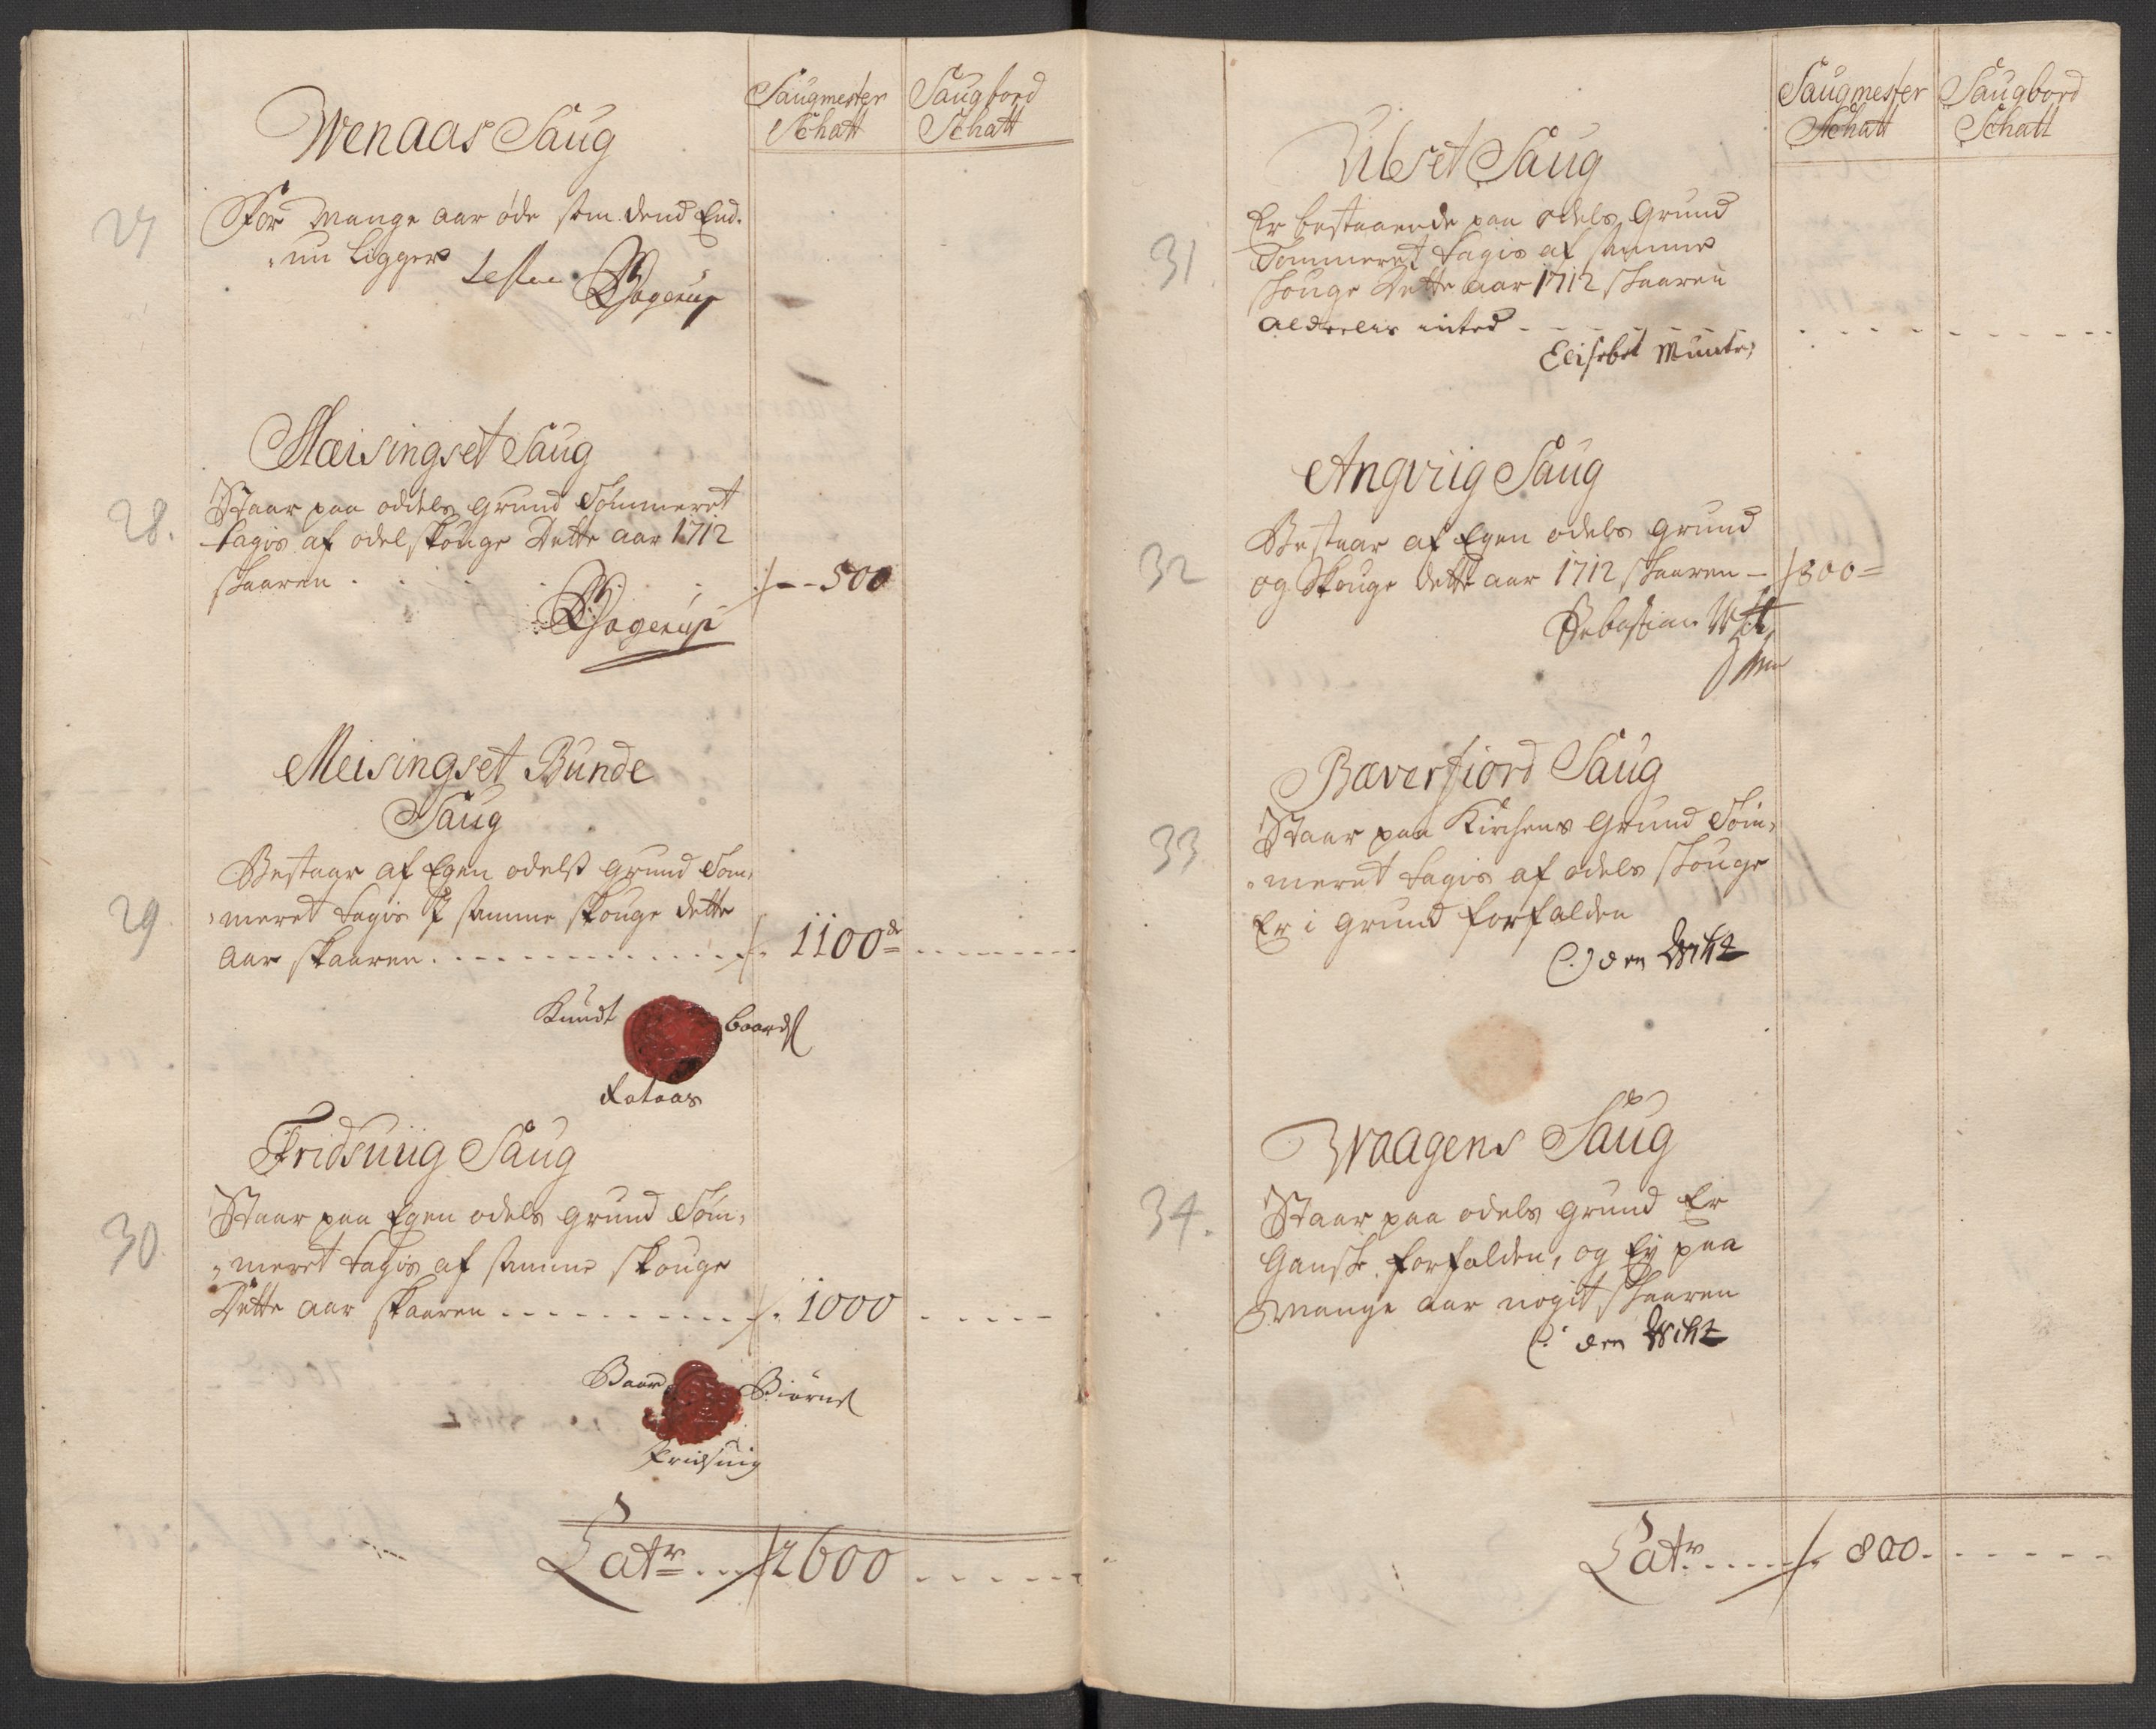 Saugmester Saugbord
Schatt Schatt
Wenaas Saug
27
For mange aar øde som dend End¬
nu Ligger
Testeer Bhagerup
Mæisingset Saug
28.
Staar paa oddels grund Tømmeret
tagis af odel skouge Dette aar 1712
skaaren . . . . - - 500
Bhagerup
Meisingset Bunde
Saug
29
Bestaar af Egen odelss grund Tøm¬
meret tagis af samme skouge dette
aar skaaren . . . . 1100 de
Knudt Baards
Aataas
Fridsuiig Saug
30
Staar paa Egen odels grund Tøm¬
meret tagis af samme skouge
Dette aar skaaren . . . . 1000
Baar Biørns
Fridsuig
Latr . . . 2600
Saugmester Saugbord
Schatt Schatt
Ulset Saug
31
Er bestaaende paa odels grund
Tømmeret tagis af samme
skouge Dette aar 1712 skaaren
aldeelis inted
Elisebet Munte
Angviig Saug
32
Bestaar af Egen odels grund
og Skouge dette aar 1712 skaaren — 800
Sebastian
Bæverfiord Saug
33
Staar paa Kirchens grund Tøm¬
meret tagis af odels skouge
Er i grund forfalden
C: von Wiht
Waagens Saug
34.
Staar paa odels grund Er
Gansk forfalden, og Ey paa
mange aar nogit skaaren
C: von Wiht
Latr . . . . 800